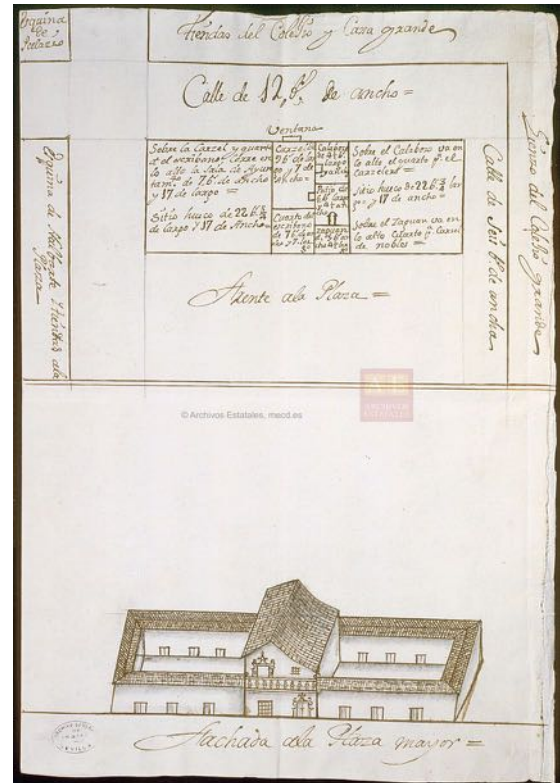 Esquina
de
Tiendas del Colexio y Cassa grande
Calle de 12 bs. de ancho =
Ventana
Sobre la Carzel y quarto
del escribano corre en
lo alto la Sala de Ayun
tamto. de 7 bs. de Ancho
y 17 de largo =
Sitio hueco de 22 bs. 3/4
de largo y 17 de Ancho =
Carzel de
9 bs. de largo
y 7 de
Ancho =
Quarto del
escribano
de 7 bs. de
Calabozo
de 4 bs.
largo
Patio de
6 bs. largo
y 4 de an
cho
Zaguan
Sobre el Calabozo va en
lo alto, el quarto pa. el
Carzelero =
Sitio hueco de 22 bs. 3/4 lar
go = y 17 de ancho =
Sobre el Zaguan va en
lo alto Quarto pa. Carzel
de nobles =
Frente ala Plaza =
Esquina de
Tiendas ala
Plaza
Calle de Seis bs. de ancha
Lienzo del Colexio grande
© Archivos Estatales, mecd.es
AE
ARCHIVOS
ESTATALES
Fachada ala Plaza mayor =
SEVILLA